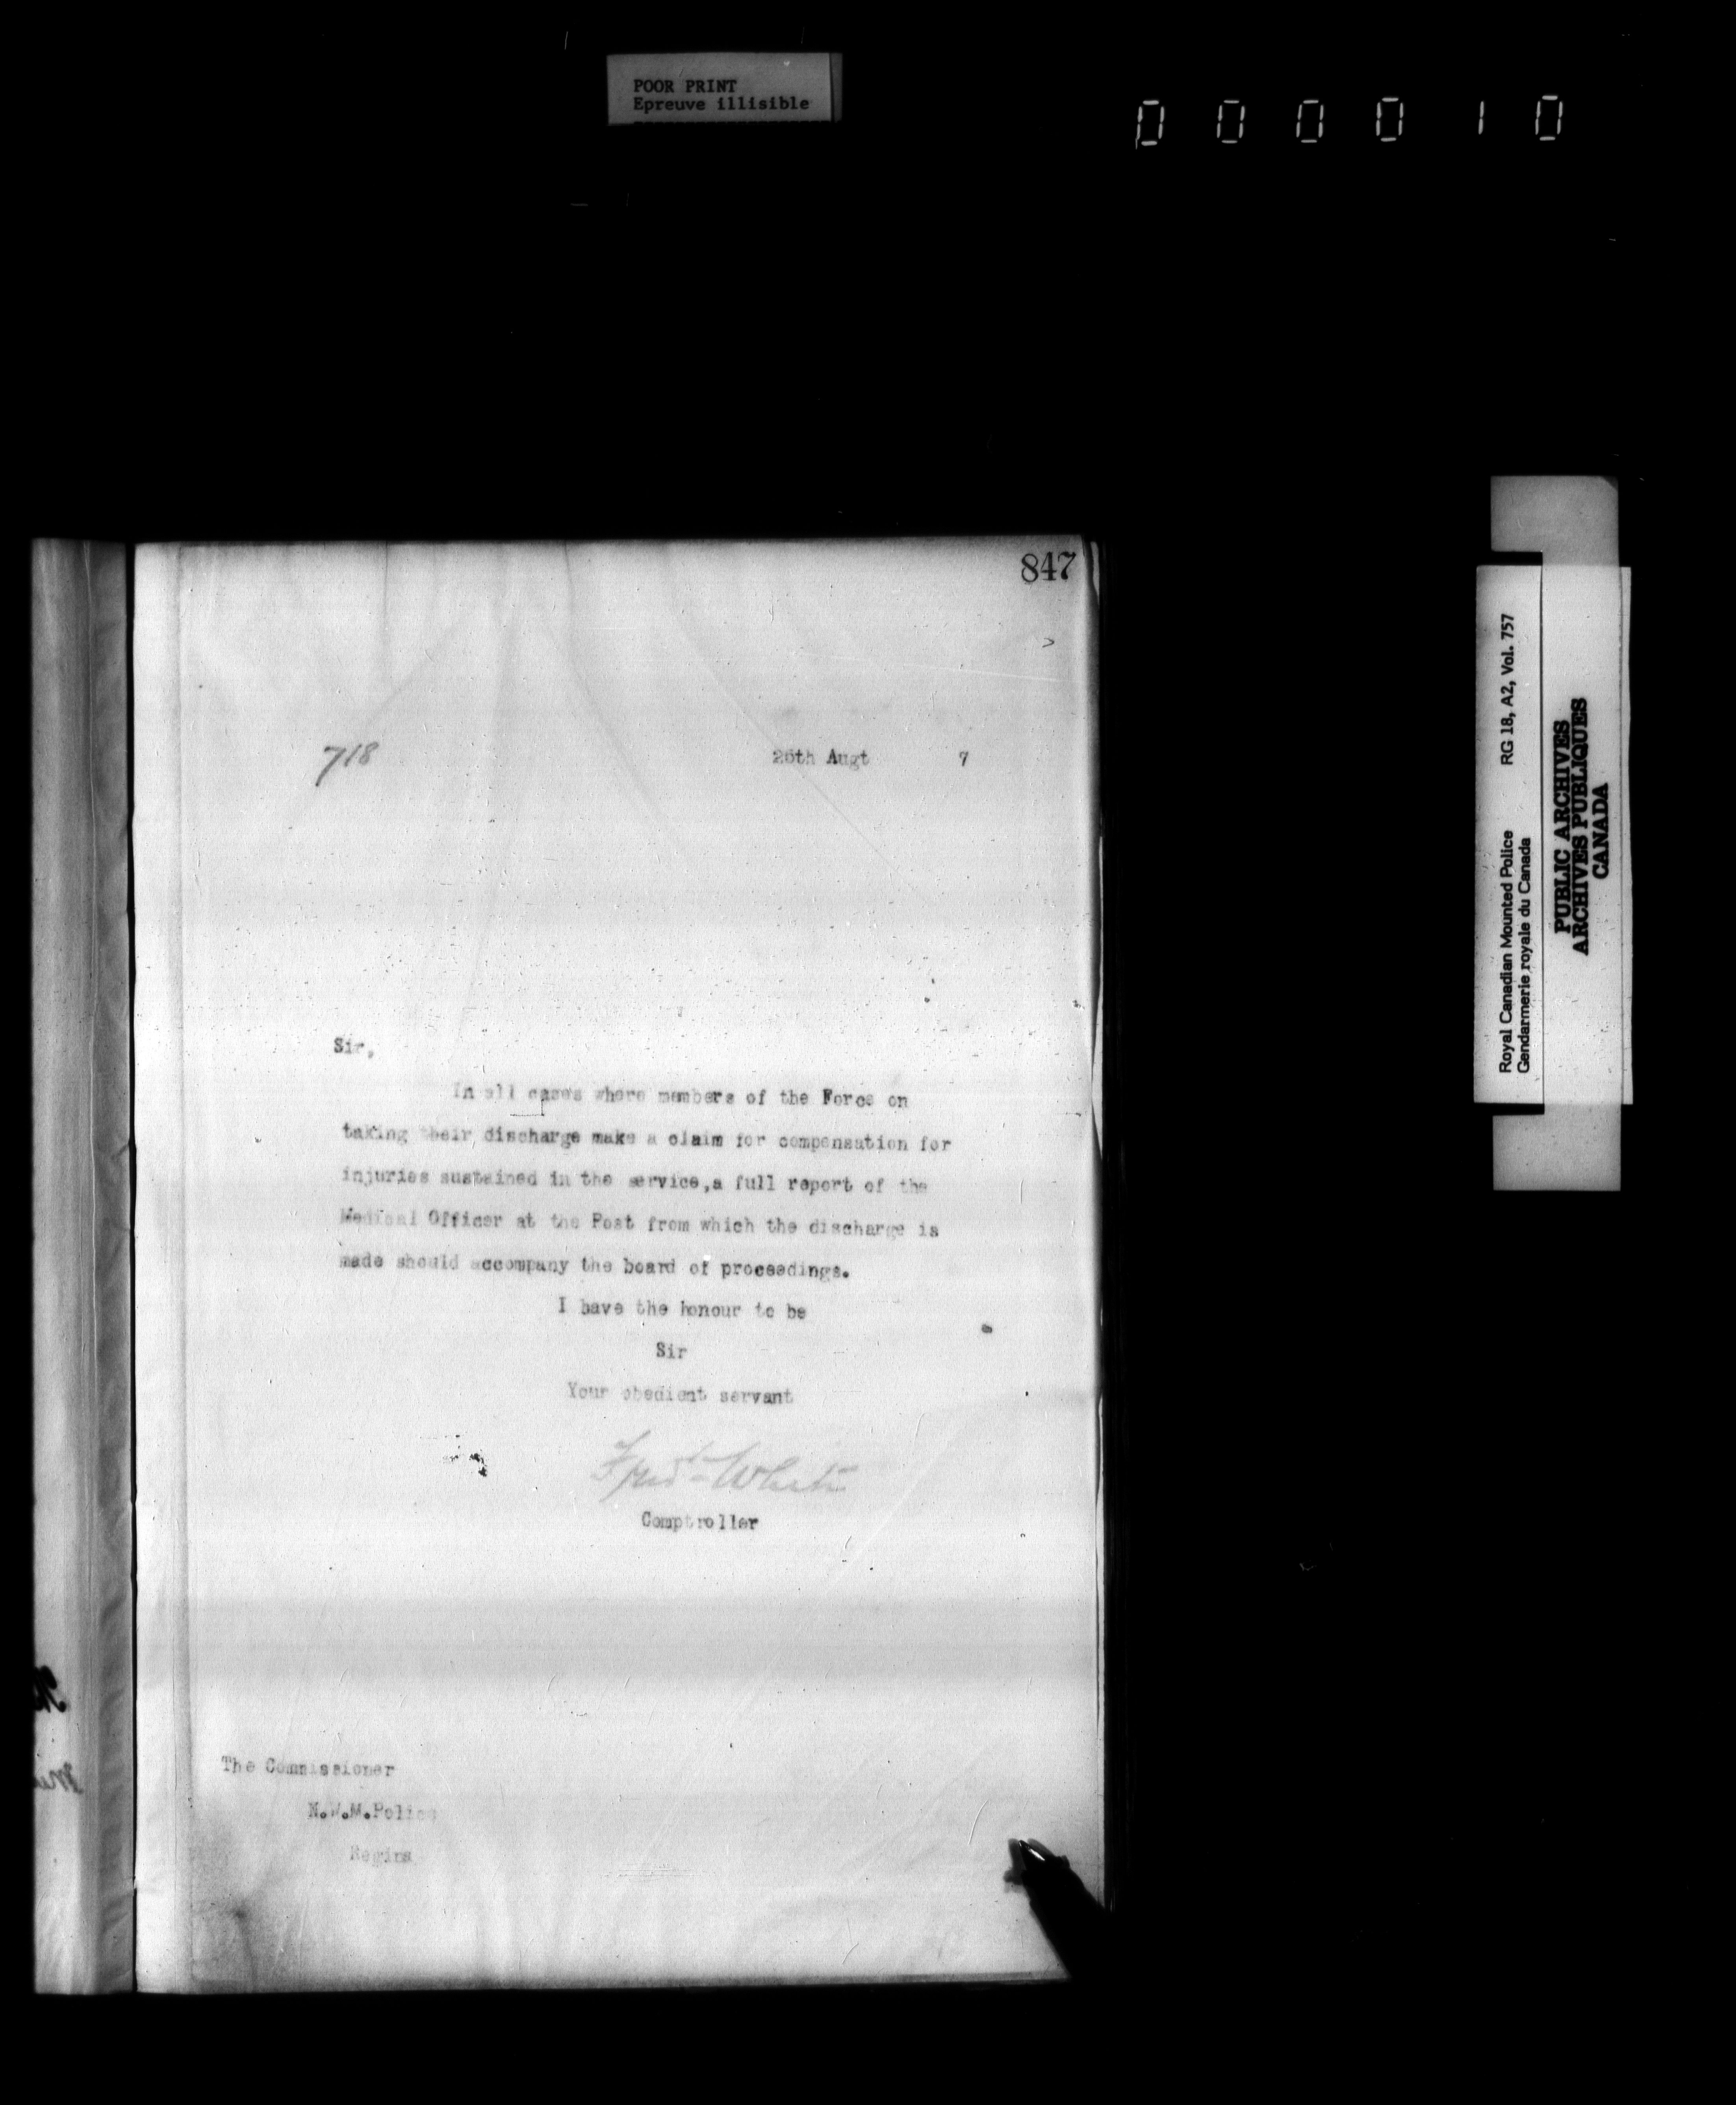 POOR PRINT
Epreuve illisible
000010
847
718
26th Augt 7
Sir,
In all cases where members of the Force on
taking their discharge make a claim for compensation for
injuries sustained in the service, a full report of the
Medical Officer at the Post from which the discharge is
made should accompany the board of proceedings.
I have the honour to be
Sir
Your obedient servant
Fred White
Comptroller
The Commissioner
N.W.M.Police
Regina
Royal Canadian Mounted Police RG 18, A2, Vol. 757
Gendarmerie royale du Canada
PUBLIC ARCHIVES
ARCHIVES PUBLIQUES
CANADA